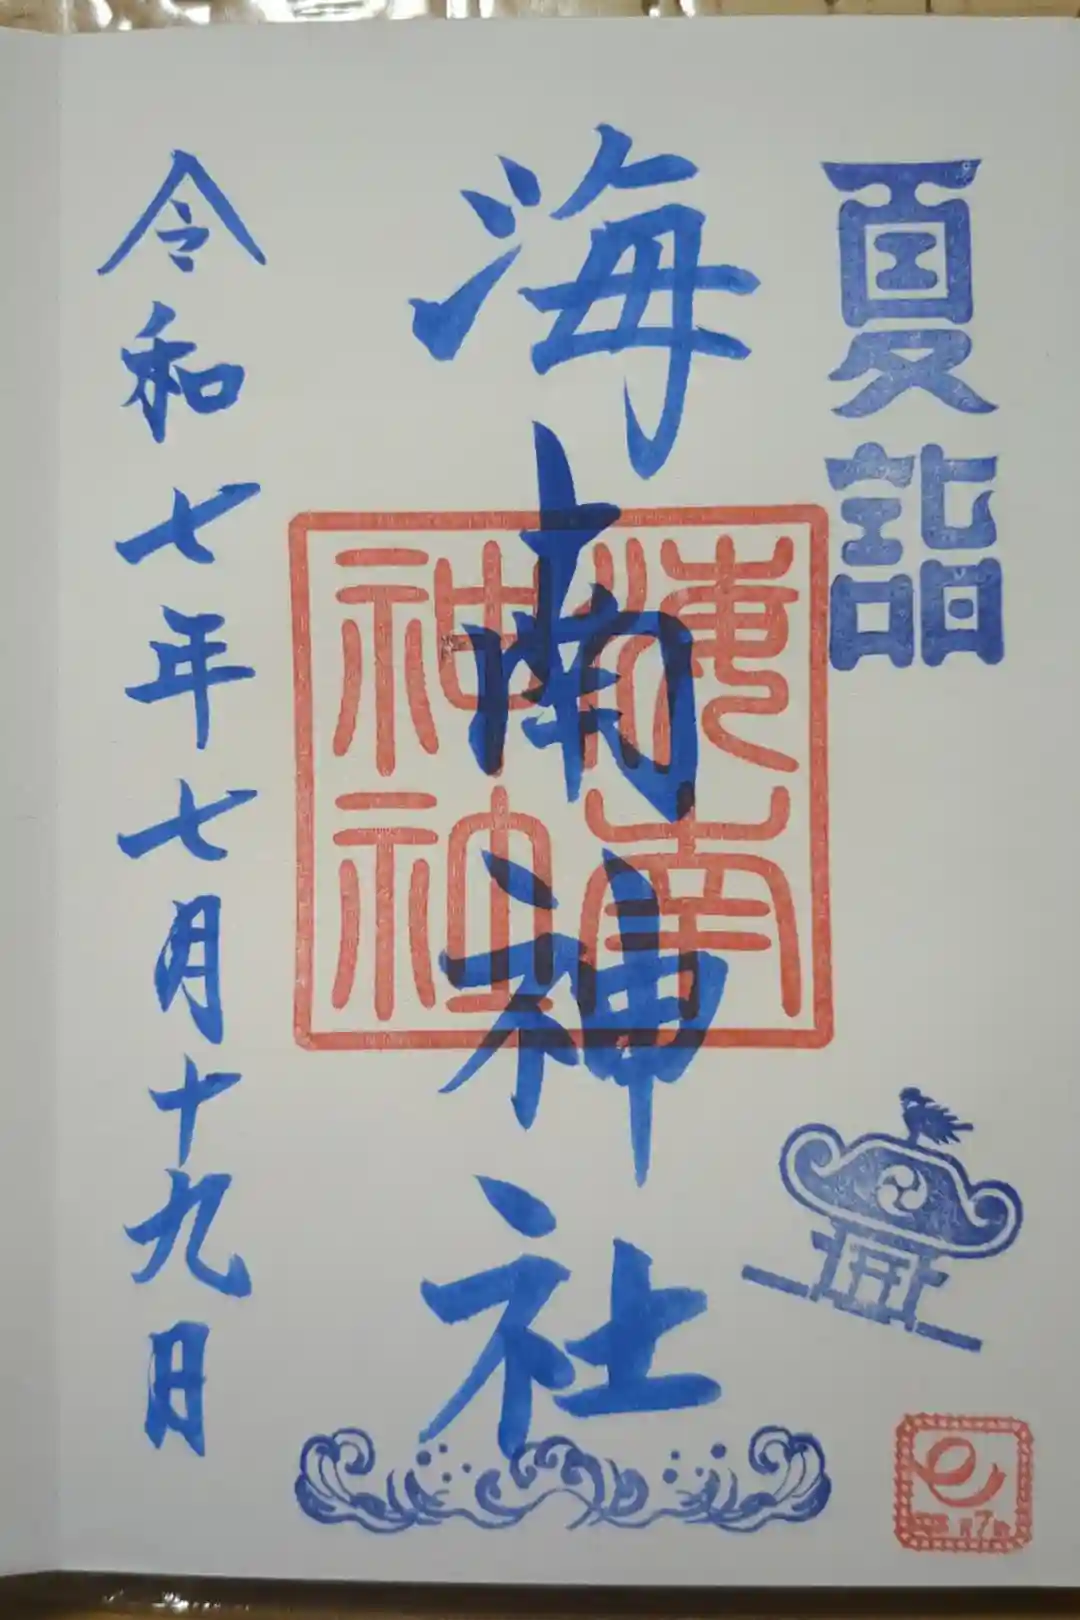 夏詣
海南神社
海南
神社
令和七年七月十九日